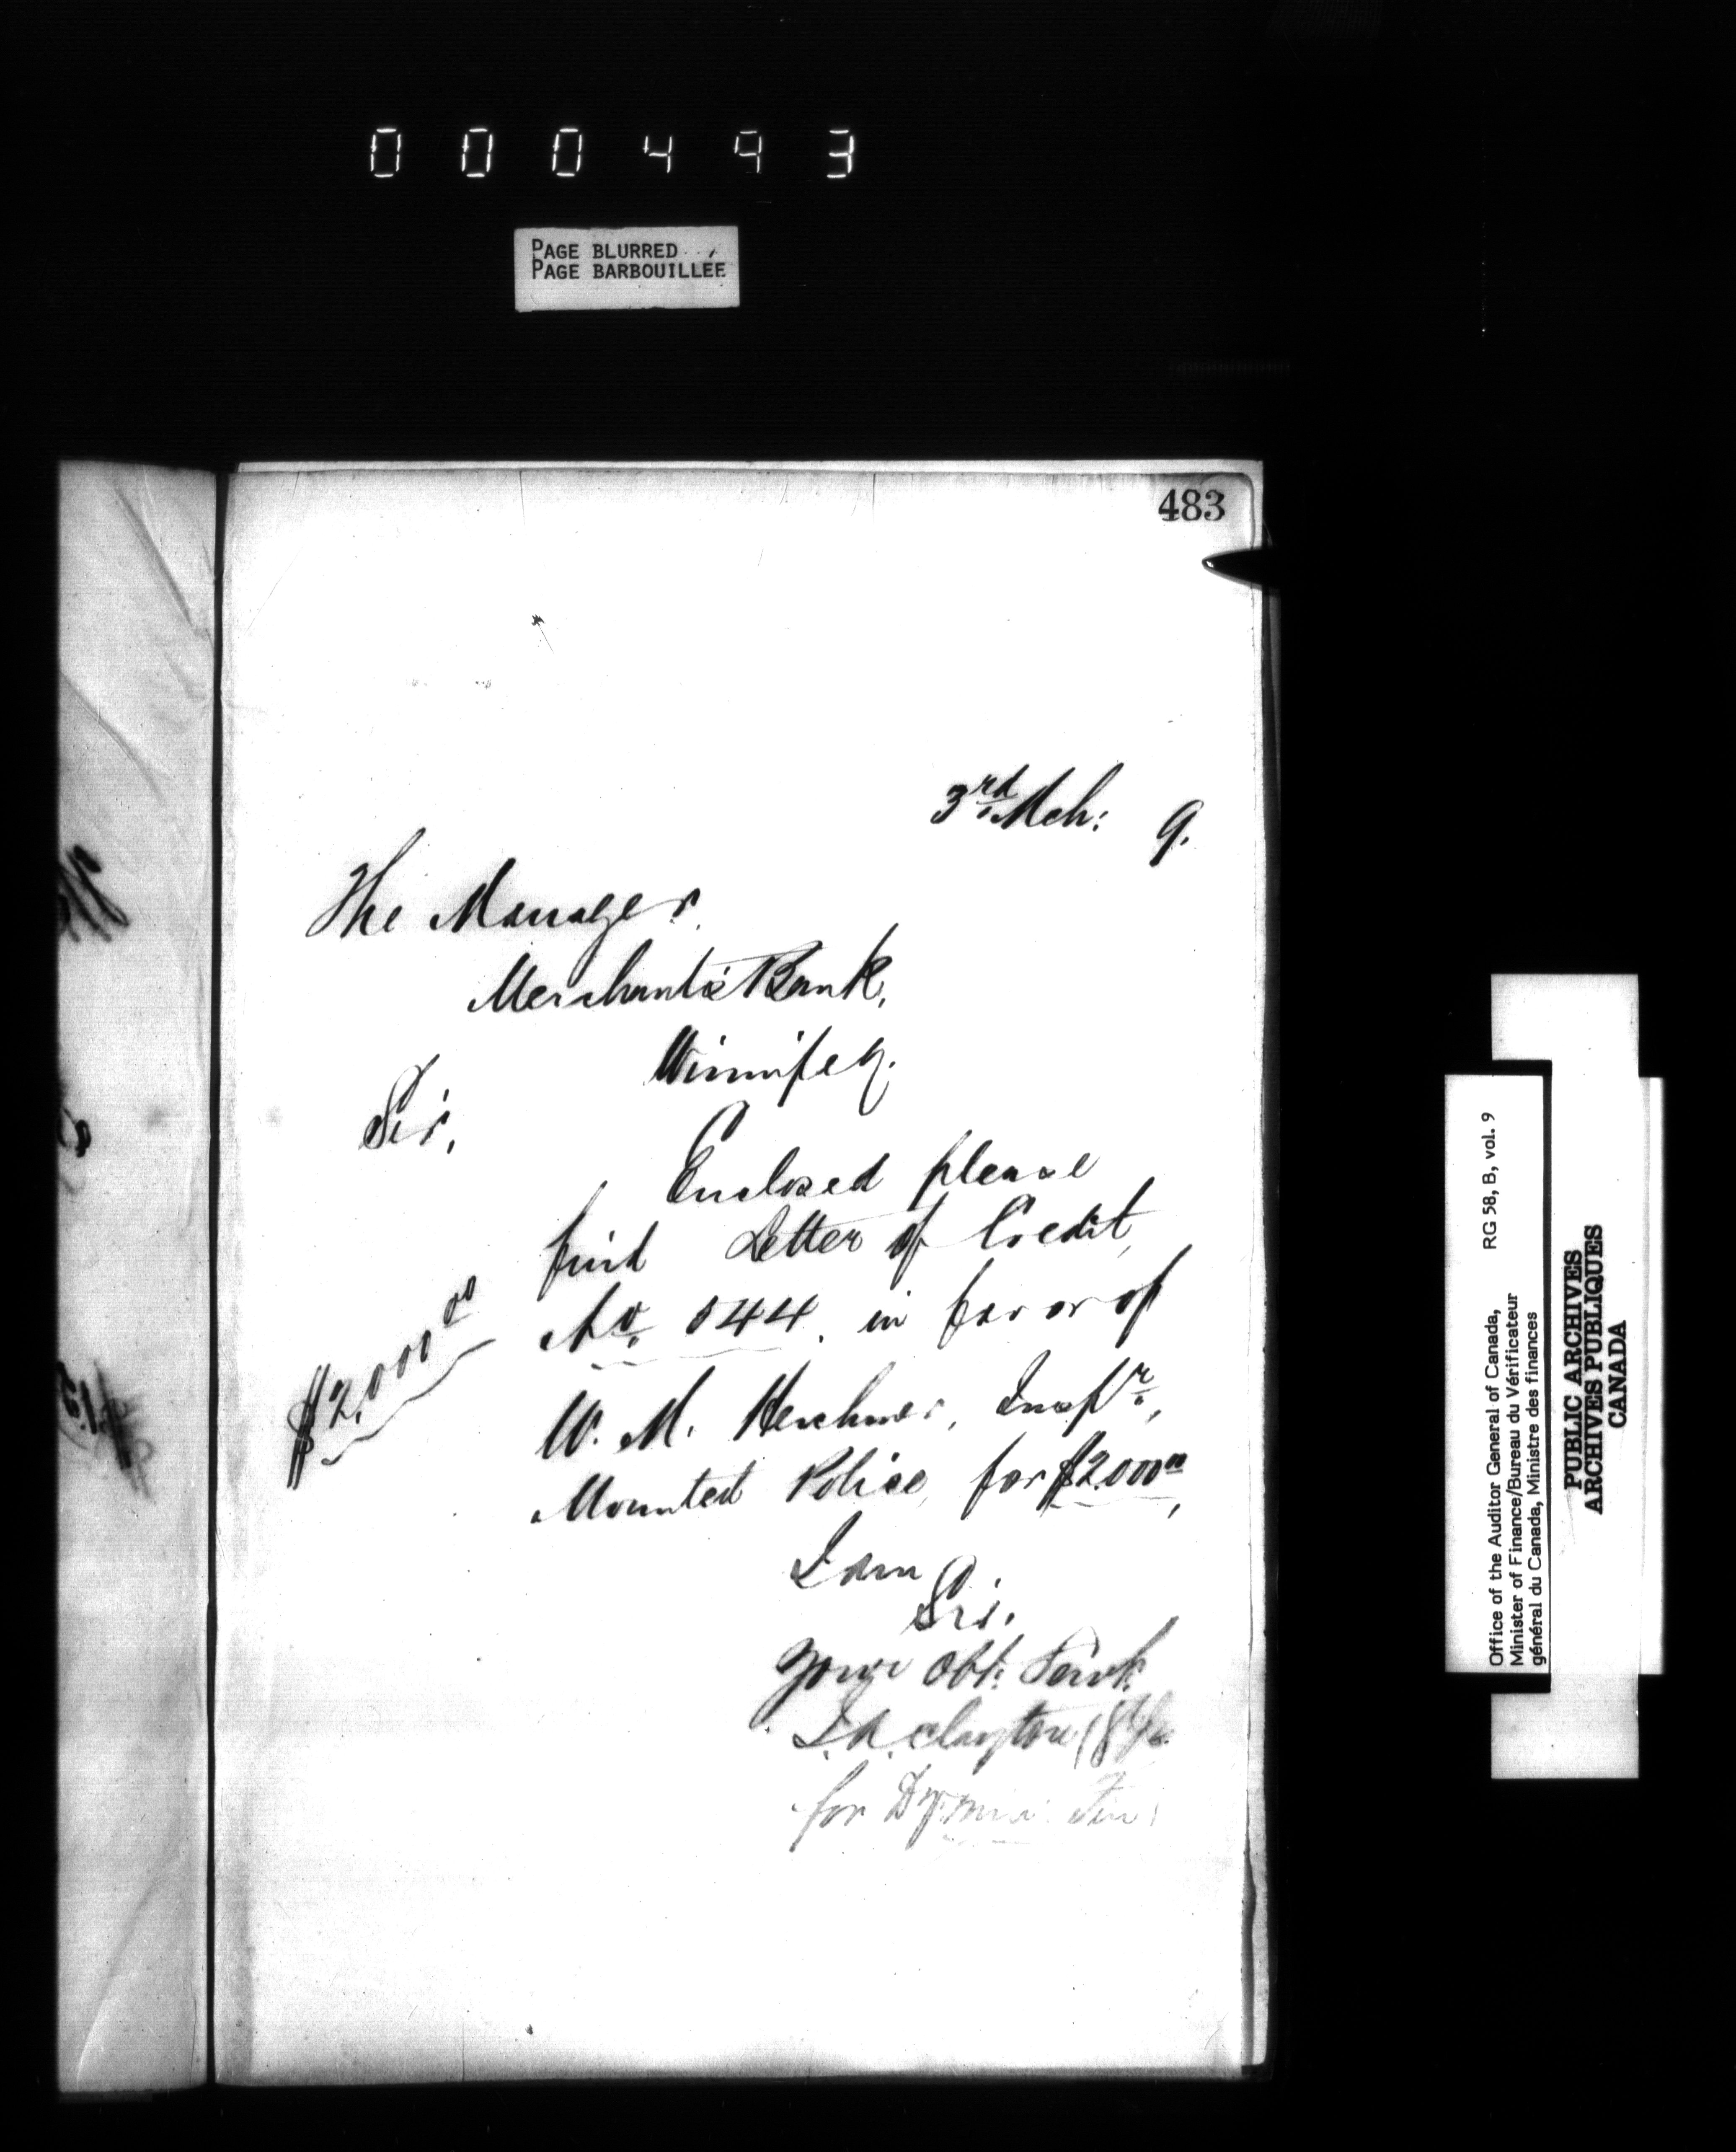 000493
PAGE BLURRED
PAGE BARBOUILLÉE
483
3rd Mch: 9.
The Manager
Merchants Bank,
Winnipeg.
Sir,
Enclosed please
find Letter of Credit,
No. 544. in favor of
$2,000 00
W. M. Herchmer, Inspr.,
Mounted Police, for $2,000 00,
I am
Sir.
Your Obt. Servt.
Clayton
for Dy. Min: Fin:
Office of the Auditor General of Canada, RG 58, B, vol. 9
Minister of Finance/Bureau du Vérificateur
général du Canada, Ministre des finances
PUBLIC ARCHIVES
ARCHIVES PUBLIQUES
CANADA